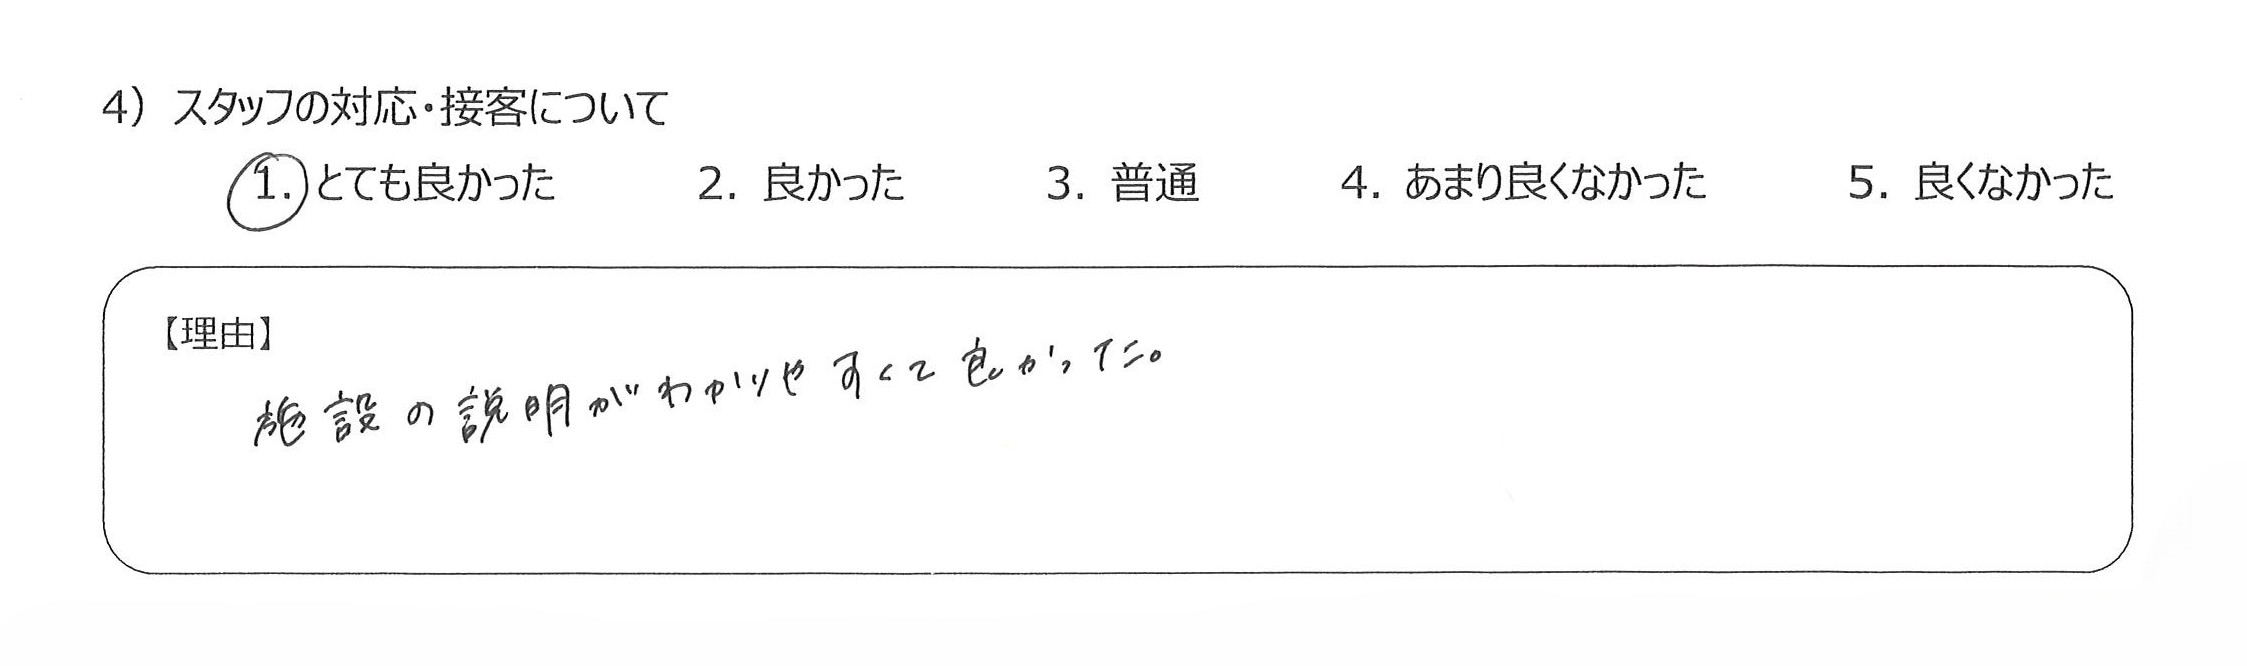 4）スタッフの対応・接客について
1. とても良かった　2. 良かった　3. 普通　4. あまり良くなかった　5. 良くなかった
【理由】
施設の説明がわかりやすくて良かった。